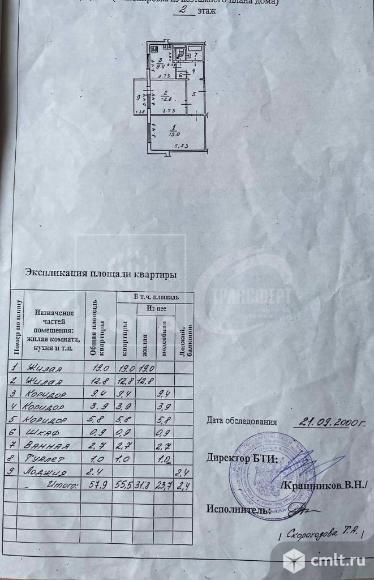 2 этаж
Экспликация площади квартиры
Номер по плану | Назначения частей помещения: жилая комната, кухня и т.п. | Общая площадь квартиры | В т.ч. площадь | Лоджии, балконы
квартиры | Из нее
жилая | подсобная
1 Жилая 19.0 19.0 19.0
2 Жилая 12,8 12,8 12,8
3 Коридор 9.4 9.4 9.4
4 Коридор 3.9 3.9 3.9
5 Коридор 5.8 5.8 5.8
6 Шкаф 0,9 0,9 0,9
7 Ванная 2,7 2,7 2,7
8 Туалет 1.0 1.0 1.0
9 Лоджия 2.4 2,4
Итого: 57,9 55,5 31.8 23,7 2,4
Дата обследования 21.09.2000г.
Директор БТИ:
/Крапников В.Н./
Исполнитель:
/ Скорогорова Т.А.
ТРАНСФЕРТ
cmlt.ru